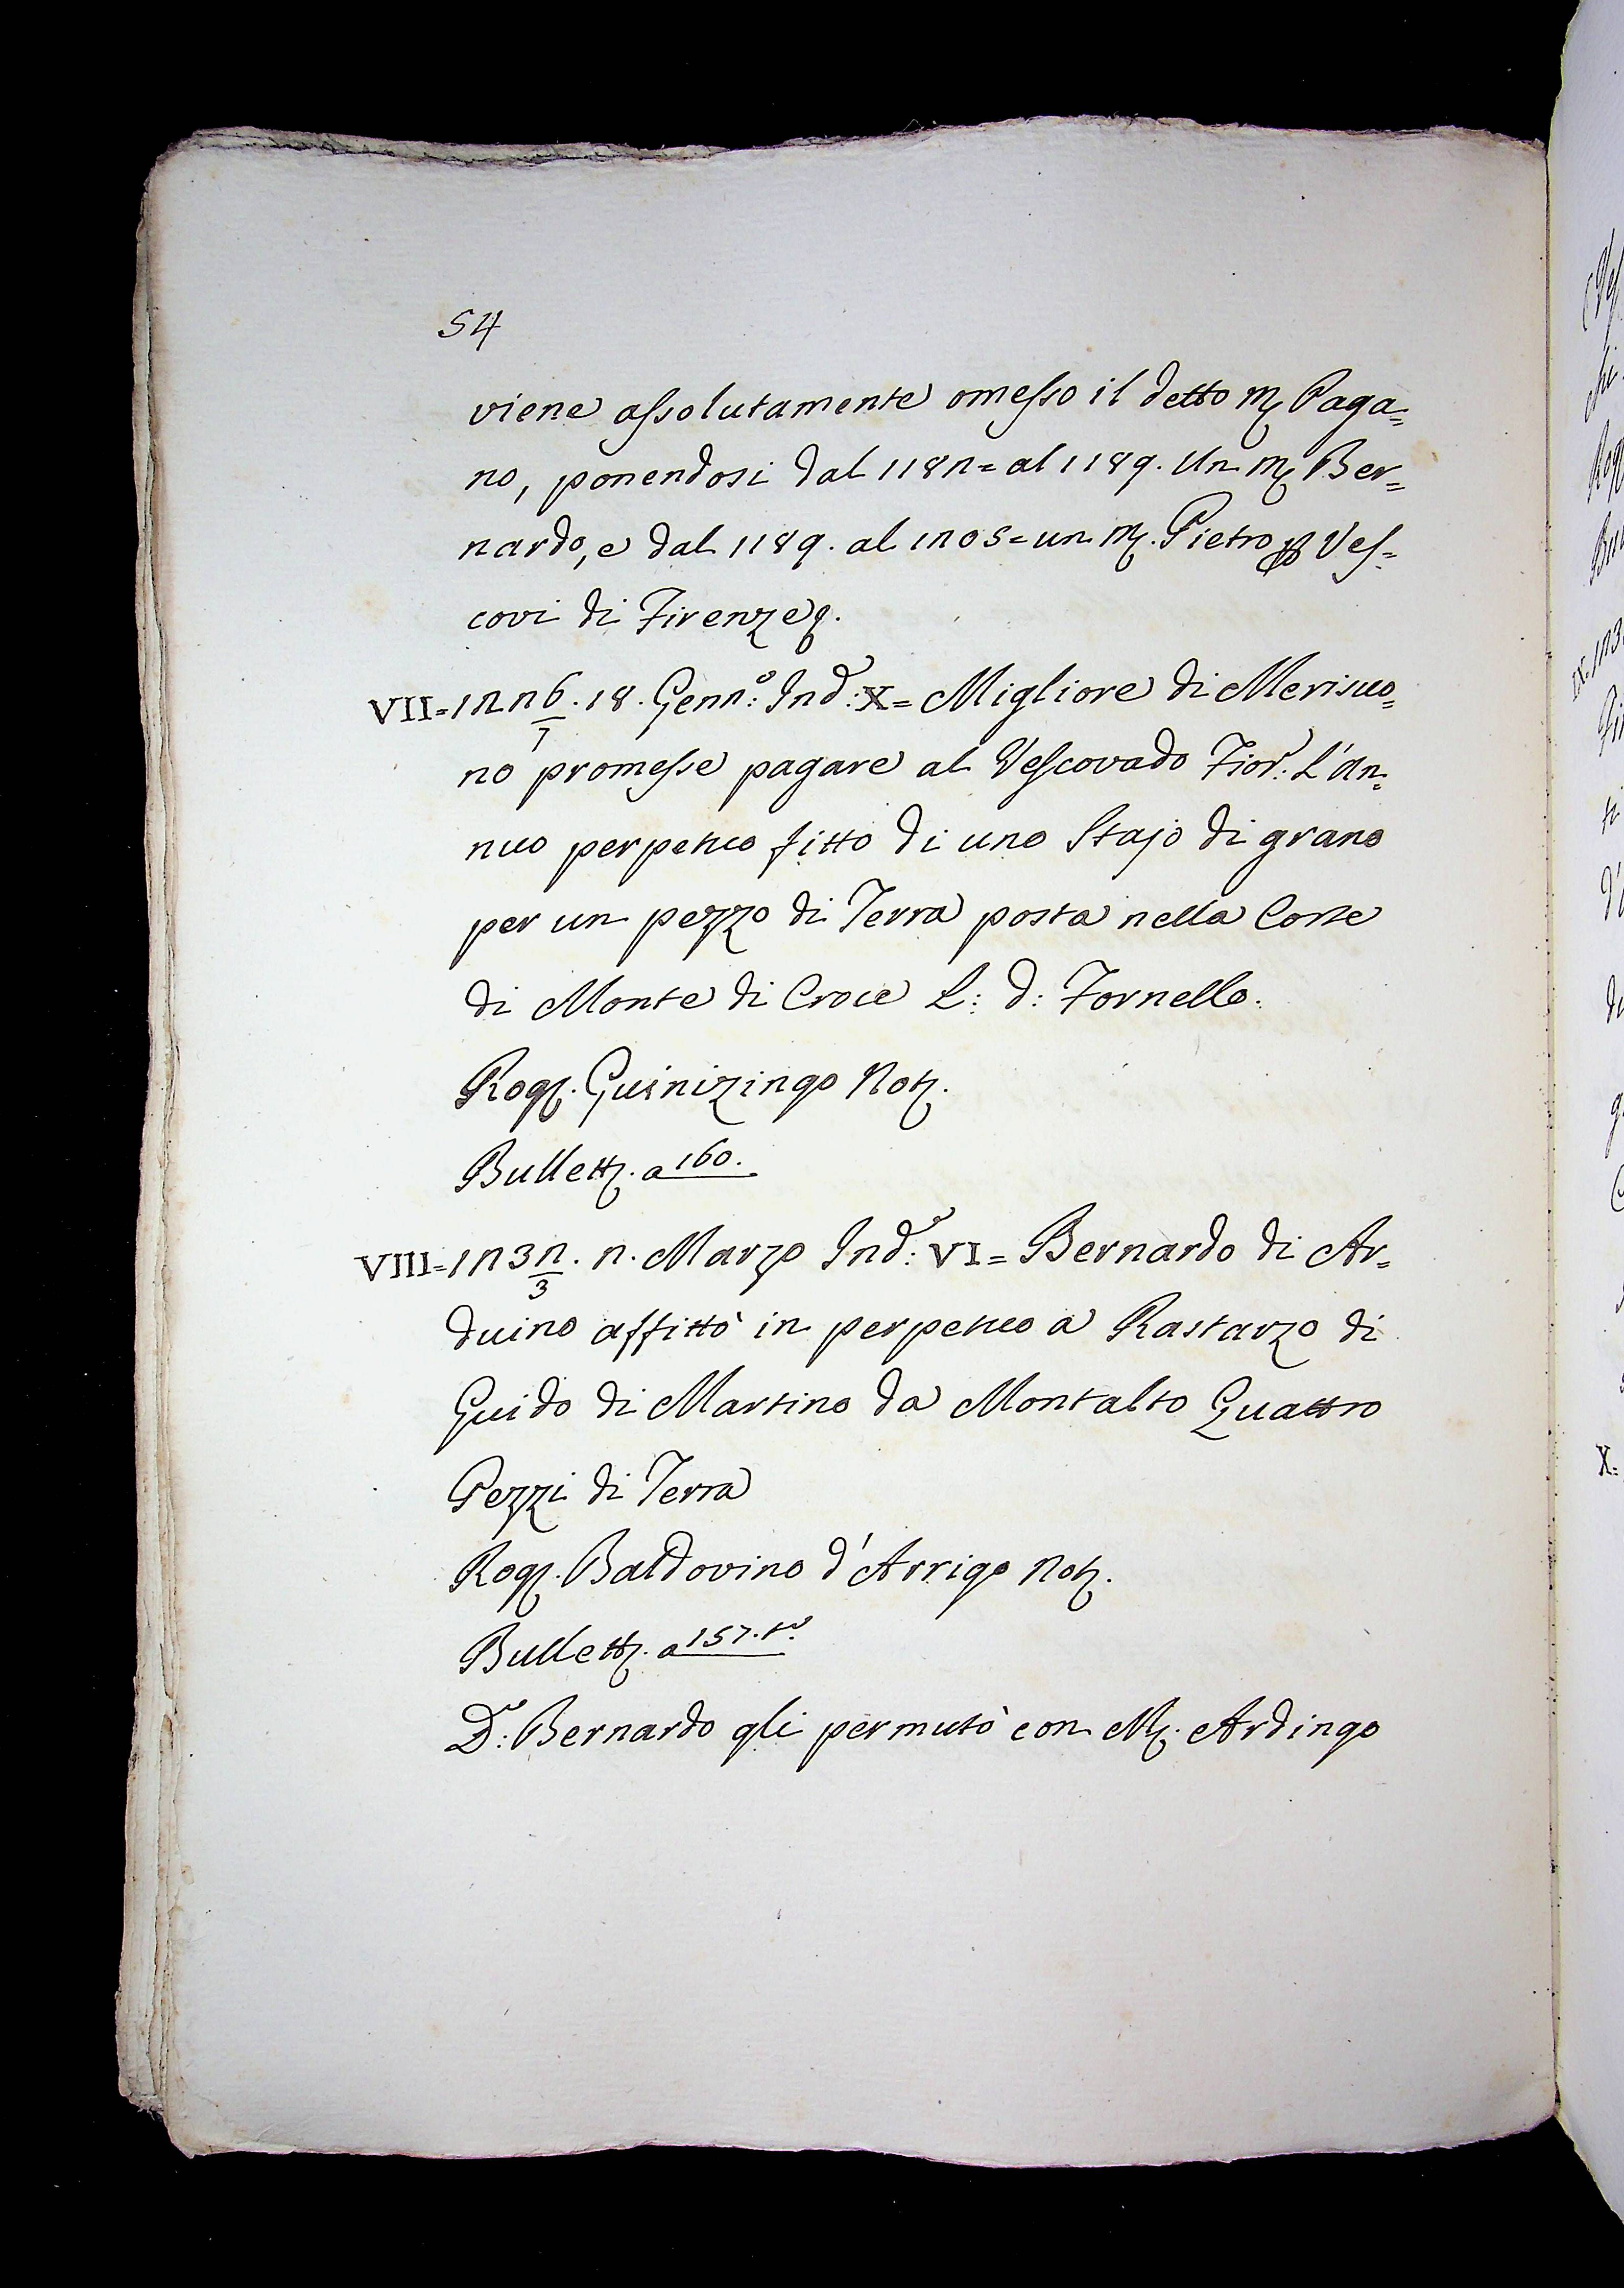 54
viene assolutamente omesso il detto M. Paga=
no, ponendosi dal 1182= al 1189. Un M. Ber=
nardo, e dal 1189. al 1205= un M. Pietro Ves=
covi di Firenze.
VII= 1226/7. 18. Genn.º Ind: X= Migliore di Merisuo=
no promesse pagare al Vescovado Fior: L'an=
nuo perpetuo fitto di uno Stajo di grano
per un pezzo di Terra posta nella Corte
di Monte di Croce L: d: Fornello.
Rog. Guinizingo Not.
Bullett. a 160.
VIII= 1232/3. 2. Marzo Ind: VI= Bernardo di Ar=
duino affittò in perpetuo a Rastarzo di
Guido di Martino da Montalto Quattro
Pezzi di Terra
Rog. Baldovino d'Arrigo Not.
Bullett. a 157. t.º
D: Bernardo gli permutò con M. Ardingo